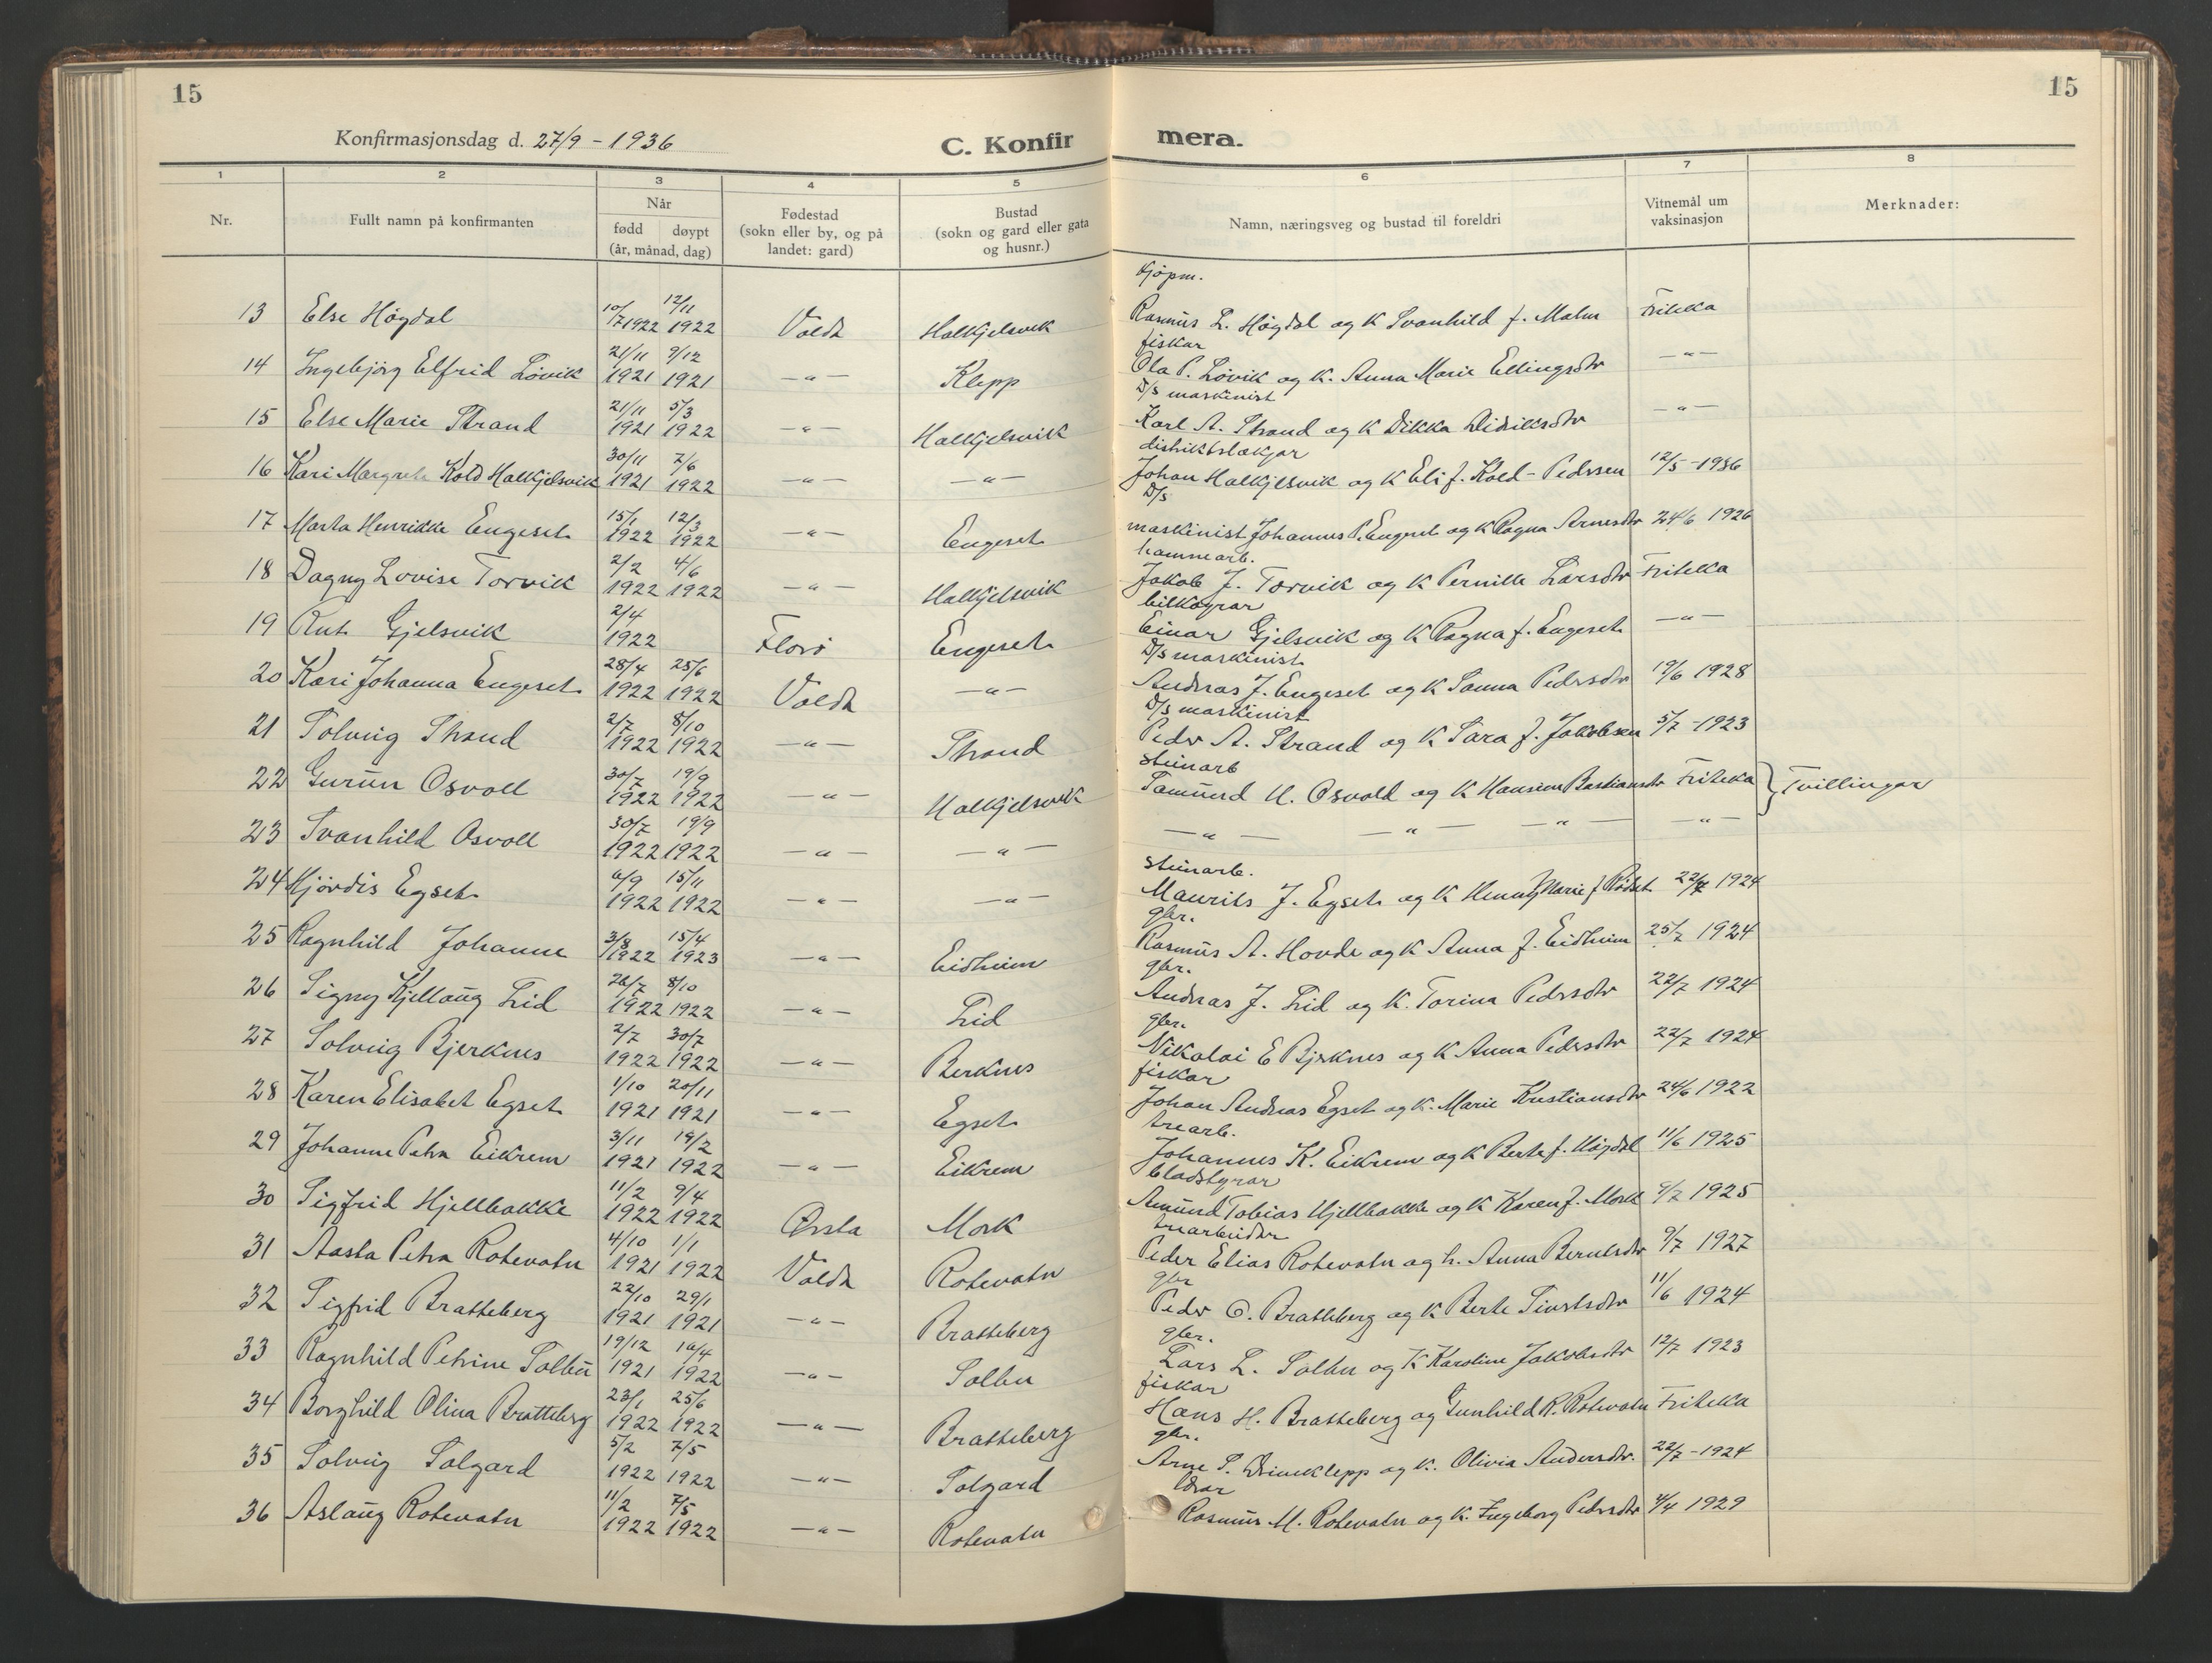 15
15
Konfirmasjonsdag d. 27/9 - 1936
C. Konfirmera.
1 2 3 4 5 6 7 8
Nr. Fullt namn på konfirmanten Når fødd døypt (år, månad, dag) Fødestad (sokn eller by, og på landet: gard) Bustad (sokn og gard eller gata og husnr.) Namn, næringsveg og bustad til foreldri Vitnemål um vaksinasjon Merknader:
kjøpm.
13 Else Høgdal 10/7 1922 12/11 1922 Volda Halkjelsvik Rasmus L. Høgdal og K Svanhild f. Malm Friteka
fiskar
14 Ingebjørg Elfrid Løvik 21/11 1921 9/12 1921 —"— Klepp Ola P. Løvik og K. Anna Marie Ellingsdtr —"—
D/s maskinist
15 Else Marie Strand 21/11 1921 5/3 1922 —"— Halkjelsvik Karl A. Strand og K Dikka Didriksdtr —"—
distriktslækjar
16 Kari Margrete Kold Halkjelsvik 30/11 1921 7/6 1922 —"— —"— Johan Halkjelsvik og K Eli f. Kold-Pedersen 12/5 - 1936
D/s
17 Marta Henrikke Engeset 15/1 1922 12/3 1922 —"— Engeset maskinist Johannes P. Engeset og K Ragna Arnesdtr 24/6 1926
hamnearb.
18 Dagny Lovise Torvik 2/2 1922 4/6 1922 —"— Halkjelsvik Jakob J. Torvik og K Pernille Larsdtr Friteka
bilkøyrar
19 Rut Gjelsvik 2/4 1922 Florø Engeset Einar Gjelsvik og K Ragna f. Engeset —"—
D/s maskinist
20 Kari Johanna Engeset 28/4 1922 25/6 1922 Volda —"— Andreas J. Engeset og K Sanna Pedersdtr 19/6 1928
D/s maskinist
21 Solveig Strand 2/7 1922 8/10 1922 —"— Strand Peder A. Strand og K Sara f. Jakobsen 5/7 - 1923
steinarb
22 Gurun Osvoll 30/7 1922 19/9 1922 —"— Halkjelsvik Samund H. Osvold og K Hansine Bastiansdtr Friteka } Tvillingar
23 Svanhild Osvoll 30/7 1922 19/9 1922 —"— —"— —"— —"— —"— —"—
steinarb.
24 Hjørdis Egset 6/9 1922 15/11 1922 —"— —"— Maurits J. Egset og K Henny Marie f Rødset 22/7 1924
gbr.
25 Ragnhild Johanne 3/8 1922 15/4 1923 —"— Eidheim Rasmus A. Hovde og K Anna f. Eidheim 25/7 1924
gbr.
26 Signy Kjellaug Lid 26/7 1922 8/10 1922 —"— Lid Andreas J. Lid og K. Torina Pedersdtr 22/7 1924
gbr.
27 Solveig Bjerknes 2/7 1922 30/7 1922 —"— Berknes Nikolai E Bjerknes og K Anna Pedersdtr 22/7 1924
fiskar
28 Karen Elisabet Egset 1/10 1921 20/11 1921 —"— Egset Johan Andreas Egset og K. Marie Kristiansdtr 24/6 1922
trearb.
29 Johanne Petra Eikrem 3/11 1921 19/2 1922 —"— Eikrem Johannes K. Eikrem og K Berte f. Høgdal 11/6 1925
bladstyrar
30 Sigfrid Hjellbakke 11/2 1922 9/4 1922 Ørsta Mork Amund Tobias Hjellbakke og K Karen f. Mork 9/7 1925
trearbeider
31 Aasta Petra Rotevatn 4/10 1921 1/1 1922 Volda Rotevatn Peder Elias Rotevatn og h. Anna Berntsdtr 9/7 1927
gbr
32 Sigfrid Bratteberg 22/10 1921 29/1 1921 —"— Bratteberg Peder O. Bratteberg og K Berte Sivertsdtr 11/6 1924
gbr.
33 Ragnhild Petrine Solbu 19/12 1921 16/4 1922 —"— Solbu Lars L. Solbu og K Karoline Jakobsdtr 12/7 1923
fiskar
34 Borghild Olina Bratteberg 23/1 1922 25/6 1922 —"— Bratteberg Hans H. Bratteberg og Gunhild R. Rotevatn Friteka
gbr.
35 Solveig Solgard 5/2 1922 7/5 1922 —"— Solgard Arne S. Driveklepp og K. Olivia Andersdtr. 22/7 - 1924
36 Aslaug Rotevatn 11/2 1922 7/5 1922 —"— Rotevatn Rasmus M. Rotevatn og K. Ingeborg Pedersdtr 4/4 1929